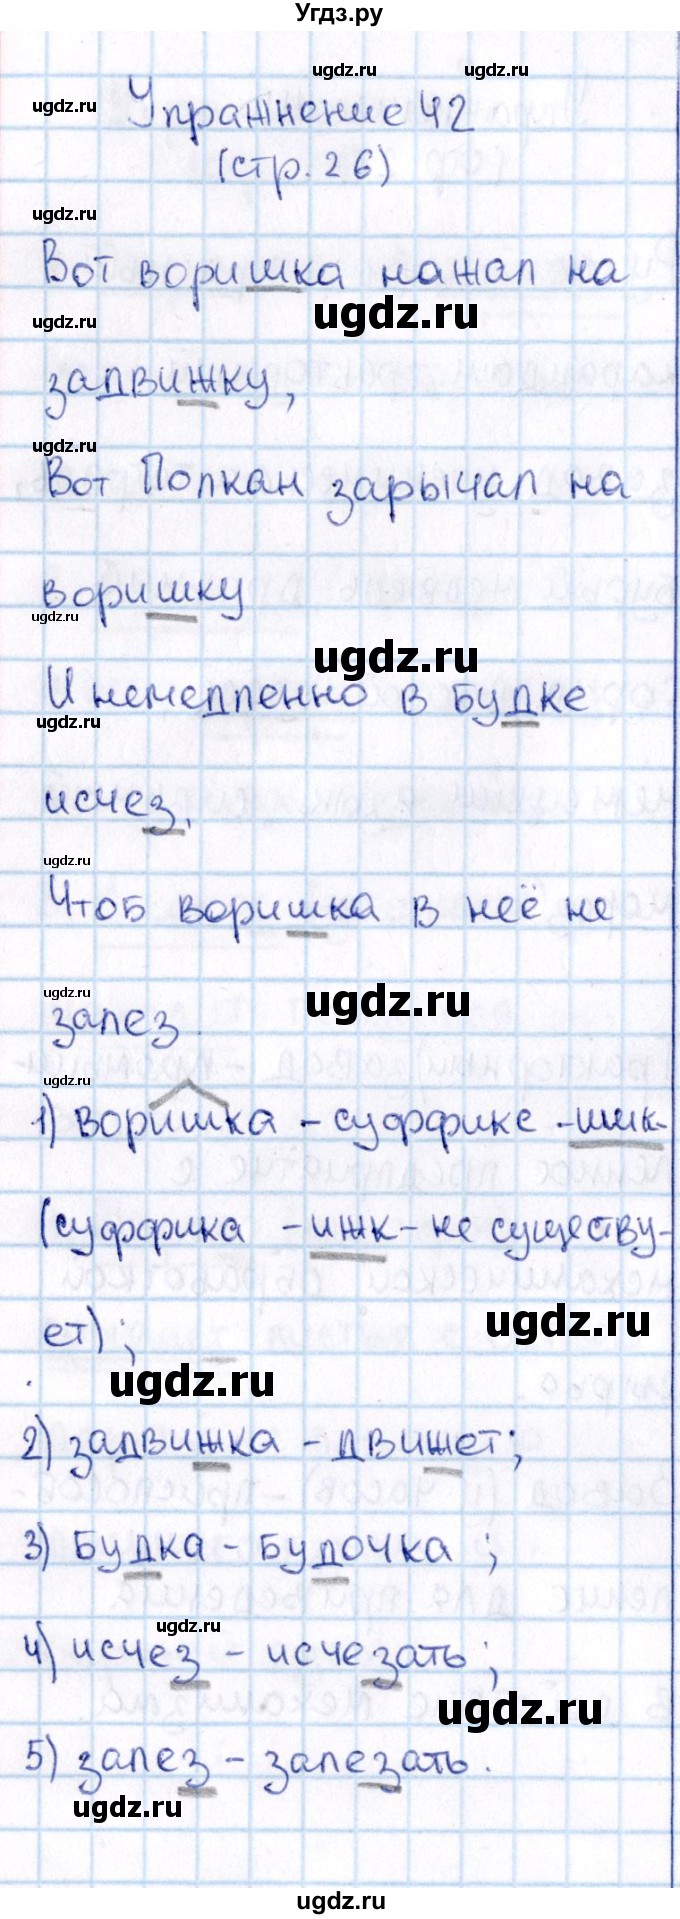 Угдз.ру
ugdz.ru ugdz.ru
ugdz.ru
Упражнение 42
(стр. 26)
ugdz.ru
Вот воришка нажал на
ugdz.ru ugdz.ru
задвижку,
ugdz.ru
Вот Полкан зарычал на
воришку
ugdz.ru
ugdz.ru
И немедленно в будке
ugdz.ru
исчез,
ugdz.ru
Чтоб воришка в неё не
ugdz.ru ugdz.ru
залез.
ugdz.ru
1) воришка - суффикс -ишк-
(суффикса -ижк- не существу-
ugdz.ru
ет);
ugdz.ru
2) задвижка - движет;
3) будка - будочка;
ugdz.ru
4) исчез - исчезать;
ugdz.ru
5) залез - залезать.
ugdz.ru
ugdz.ru